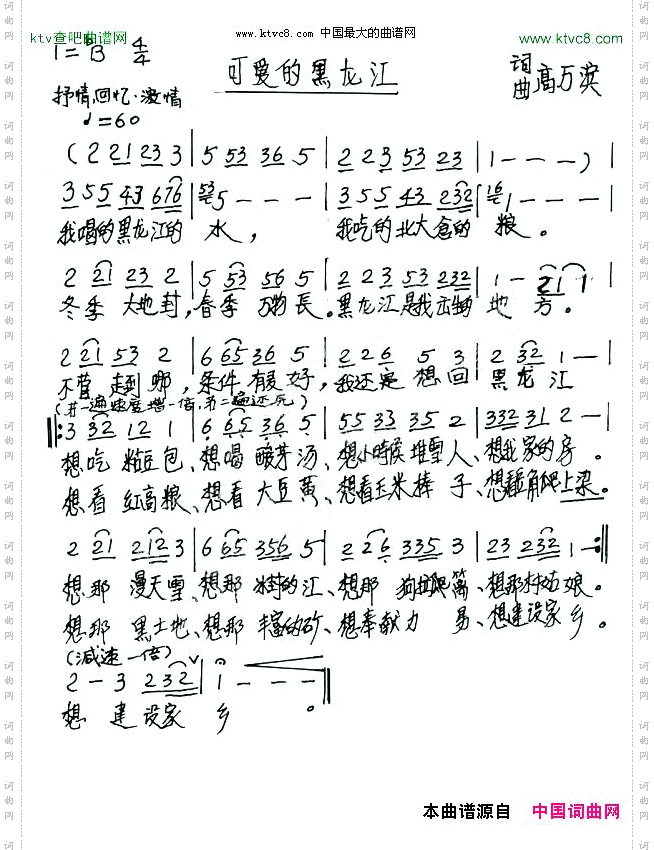 ktv查吧曲谱网 www.ktvc8.com 中国最大的曲谱网 www.ktvc8.com
1=♭B 4/4
可爱的黑龙江
词曲 高万滨
抒情,回忆·激情
♩=60
(2 21 23 3 | 5 53 36 5 | 2 23 53 23 | 1 - - - )
355 43 676 | 535 - - - | 355 43 232 | 161 - - - |
我喝的黑龙江的 水, 我吃的北大仓的 粮。
2 21 23 2 | 5 53 56 5 | 2 23 53 232 | 1 - 21 1 |
冬季 大地封,春季 万物長。黑龙江是我 地 方。
2 21 53 2 | 6 65 36 5 | 2 26 5 3 | 2 32 1 - |
不管 走到 哪,条件 有多 好,我还是 想回 黑龙 江
(第一遍速度增一倍,第二遍还元)
3 332 12 1 | 6 65 36 5 | 55 33 35 2 | 332 31 2 - |
想吃 粘豆包、想喝 酸芽汤、想小時候 堆雪人、想我家的房。
想看 红高粮、想看 大豆黄、想看玉米棒 子、想 角爬上梁。
2 21 212 3 | 6 65 356 5 | 2 26 335 3 | 23 232 1 - :‖
想那 漫天雪、想那 冰封的江、想那 狗拉爬篱、想那村姑娘。
想那 黑土地、想那 丰富的矿、想奉献力 、想建设家 乡。
(减速一倍)
2 - 3 232 | 1 - - - ‖
想 建 设家 乡 。
本曲谱源自 中国词曲网
词曲网